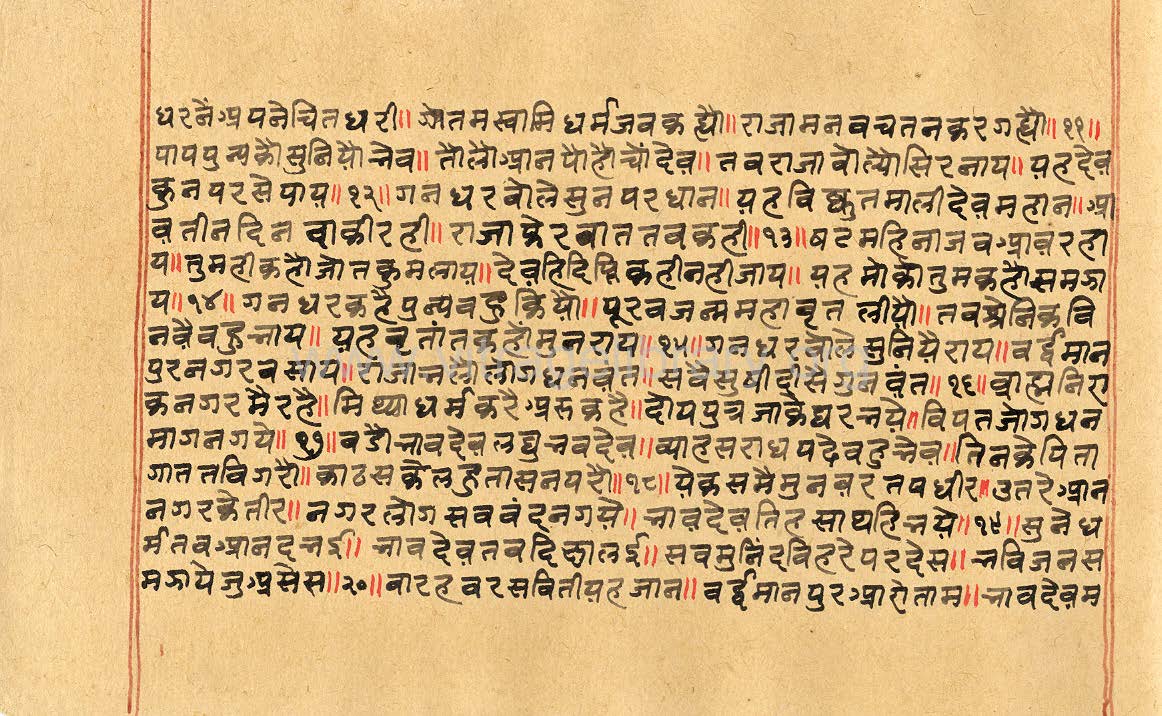 धरनैअपनेचितधरी॥ गोतमस्वामि धर्मजवकह्यौ॥ राजामनवचतनकरगह्यौ॥ ११॥
पापपुन्यकौसुनियौभेव॥ तौलौआनपौहौच्यौदेव॥ तवराजावोल्यौसिरनाय॥ यहदेव
कुनपरसेपाय॥ १२॥ गनधरवोलेसुनपरधान॥ यहविद्युतमालीदेवमहान॥ आ
वतीनदिन वाकीरही॥ राजाफेरवाततवकही॥ १३॥ षटमहिनाजवआवरहा
य॥ तुमहीकहौजोतकुमलाय॥ देवहिदिप्तिकहीनहीजाय॥ यहमोकोतुमकहौसमझा
य॥ १४॥ गनधरकहैपुन्यवहुकियौ॥ पूरवजन्ममहावृत लीयौ॥ तवश्रेनिकवि
नवैवहुभाय॥ यहवृतांतकहौमुनराय॥ १५॥ गनधरवोलेसुनियैराय॥ वर्द्धमान
पुरनगरवसाय॥ राजाभलालोगधनवंत॥ सवैसुषीदीसैगुनवंत॥ १६॥ व्राह्मनिरा
कनगरमैरहै॥ मिथ्याधर्मकरैअरुकहै॥ दोयपुत्रजाकेघरभये॥ विपतजोगधन
मागनगये॥ १७॥ वडौभावदेवलघुभवदेव॥ व्याहसराधपढेवहुभेव॥ तिनकेपिता
गाततविगरौ॥ काठसकैलहुतासनपरौ॥ १८॥ येकसमैमुनवरतपधीर॥ उतरेआन
नगरकेतीर॥ नगरलोगसववंदनगये॥ भावदेवतिहसाथहिभये॥ १९॥ सुनेध
र्मतवआनदभई॥ भावदेवतवदिछालई॥ सवमुनिंदविहरेपरदेस॥ भविजनस
मझायेजुअसेस॥ २०॥ वारहवरसवितीयहजान॥ वर्द्धमानपुरआयेताम॥ भावदेवम
www.vitragvibrary.org